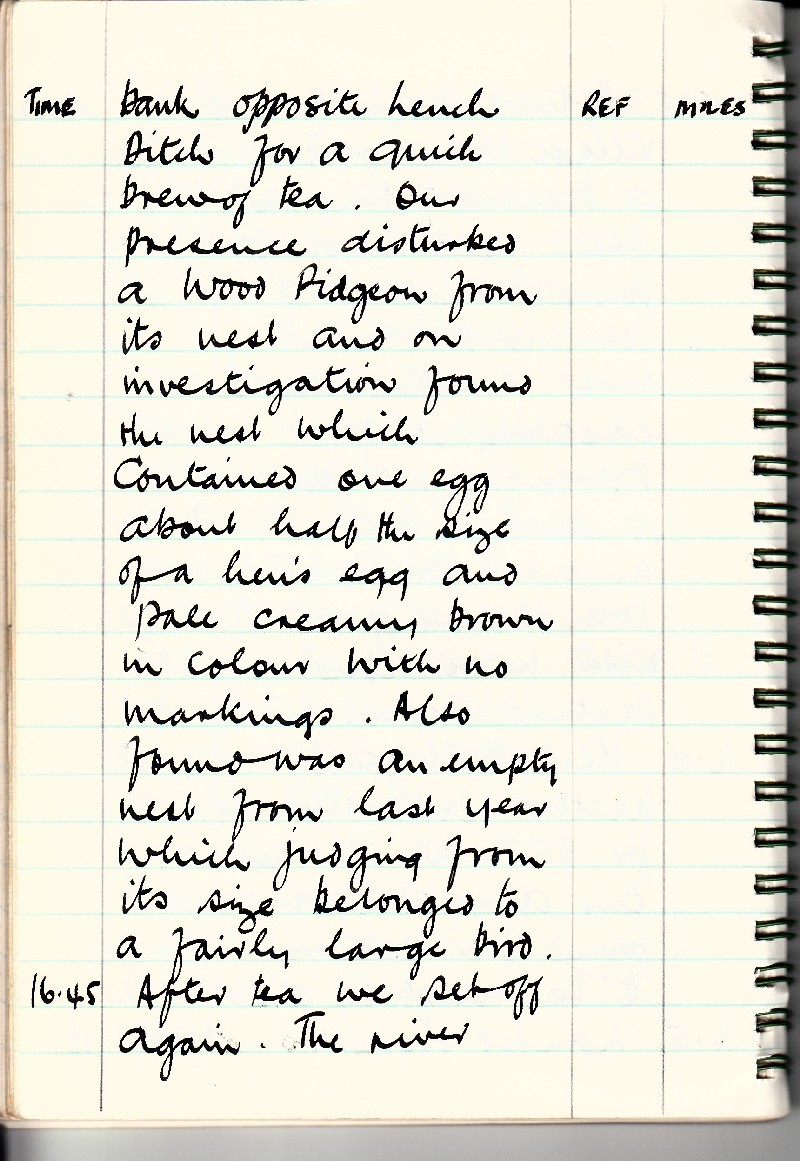 TIME bank opposite Lench REF MILES
Ditch for a quick
brew of tea. Our
presence disturbed
a Wood Pidgeon from
its nest and on
investigation found
the nest which
Contained one egg
about half the size
of a hen's egg and
pale creamy brown
in colour with no
markings. Also
found was an empty
nest from last year
which judging from
its size belonged to
a fairly large bird.
16.45 After tea we set off
again. The river